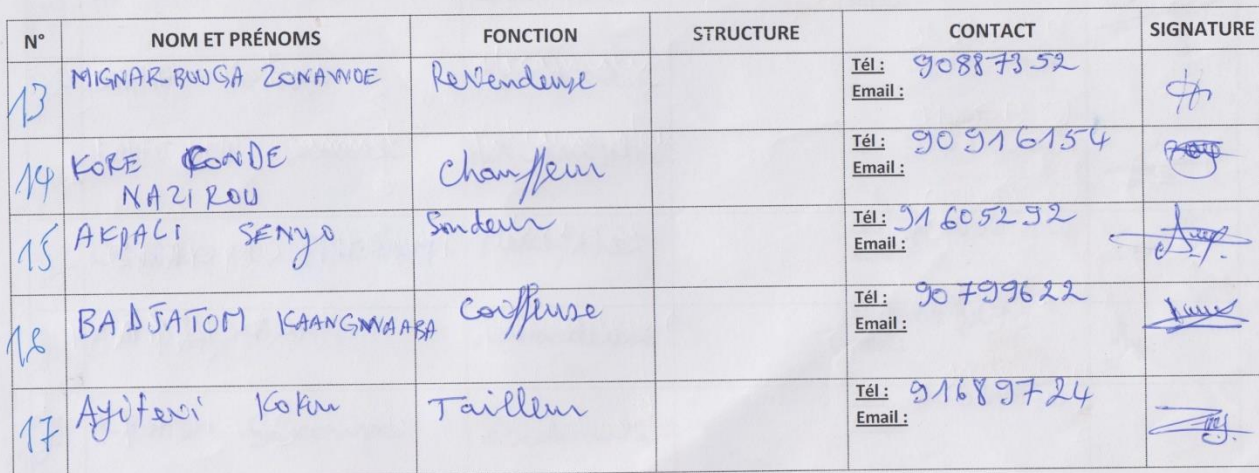 N° NOM ET PRÉNOMS FONCTION STRUCTURE CONTACT SIGNATURE
13 MIGNARBOUGA Revendeuse Tél : 90887352
Email :
14 KORE CONDE Chauffeur Tél : 90916154
NAZIROU Email :
15 AKPALI SENYO Soudeur Tél : 91605292
Email :
16 BADJATOM Coiffeuse Tél : 90799622
Email :
17 Kokou Tailleur Tél : 91689724
Email :